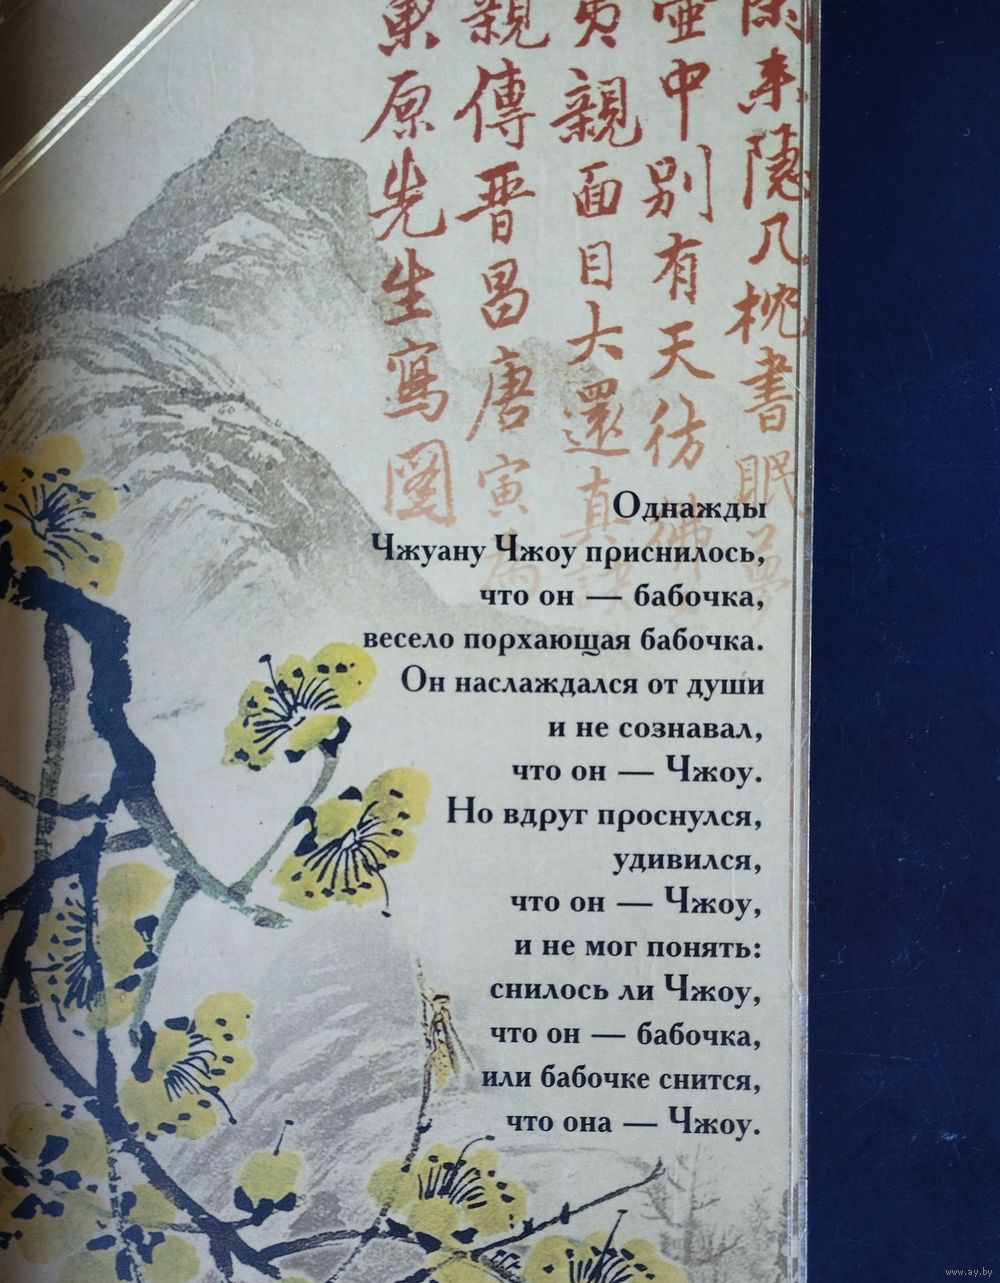 閑來隱几枕書眠夢
壺中別有天彷彿
夷親面目大還真訣
親傳晉昌唐寅為
東原先生寫圖
Однажды
Чжуану Чжоу приснилось,
что он — бабочка,
весело порхающая бабочка.
Он наслаждался от души
и не сознавал,
что он — Чжоу.
Но вдруг проснулся,
удивился,
что он — Чжоу,
и не мог понять:
снилось ли Чжоу,
что он — бабочка,
или бабочке снится,
что она — Чжоу.
www.ay.by